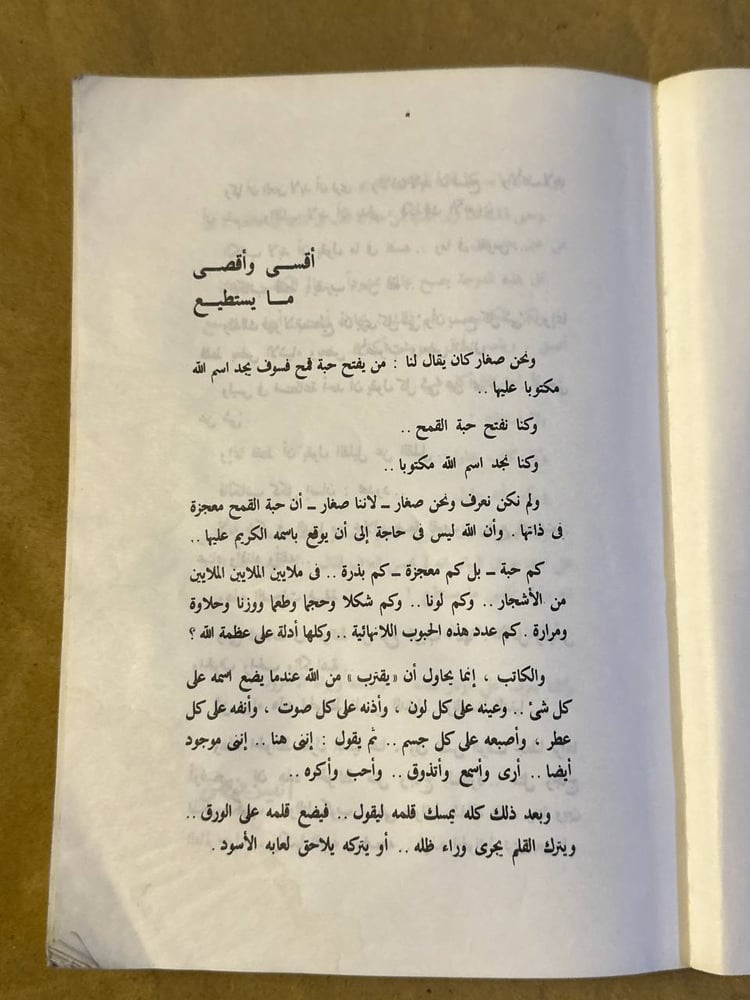 أقسى وأقصى
ما يستطيع
ونحن صغار كان يقال لنا : من يفتح حبة قمح فسوف يجد اسم الله
مكتوبا عليها ..
وكنا نفتح حبة القمح ..
وكنا نجد اسم الله مكتوبا ..
ولم نكن نعرف ونحن صغار – لاننا صغار – أن حبة القمح معجزة
فى ذاتها . وأن الله ليس فى حاجة إلى أن يوقع باسمه الكريم عليها ..
كم حبة – بل كم معجزة – كم بذرة .. فى ملايين الملايين الملايين
من الأشجار .. وكم لونا .. وكم شكلا وحجما وطعما ووزنا وحلاوة
ومرارة . كم عدد هذه الحبوب اللانهائية .. وكلها أدلة على عظمة الله ؟
والكاتب ، إنما يحاول أن « يقترب » من الله عندما يضع اسمه على
كل شئ .. وعينه على كل لون ، وأذنه على كل صوت ، وأنفه على كل
عطر ، وأصبعه على كل جسم .. ثم يقول : إننى هنا .. إننى موجود
أيضا .. أرى وأسمع وأتذوق .. وأحب وأكره ..
وبعد ذلك كله يمسك قلمه ليقول .. فيضع قلمه على الورق ..
ويترك القلم يجرى وراء ظله .. أو يتركه يلاحق لعابه الأسود .